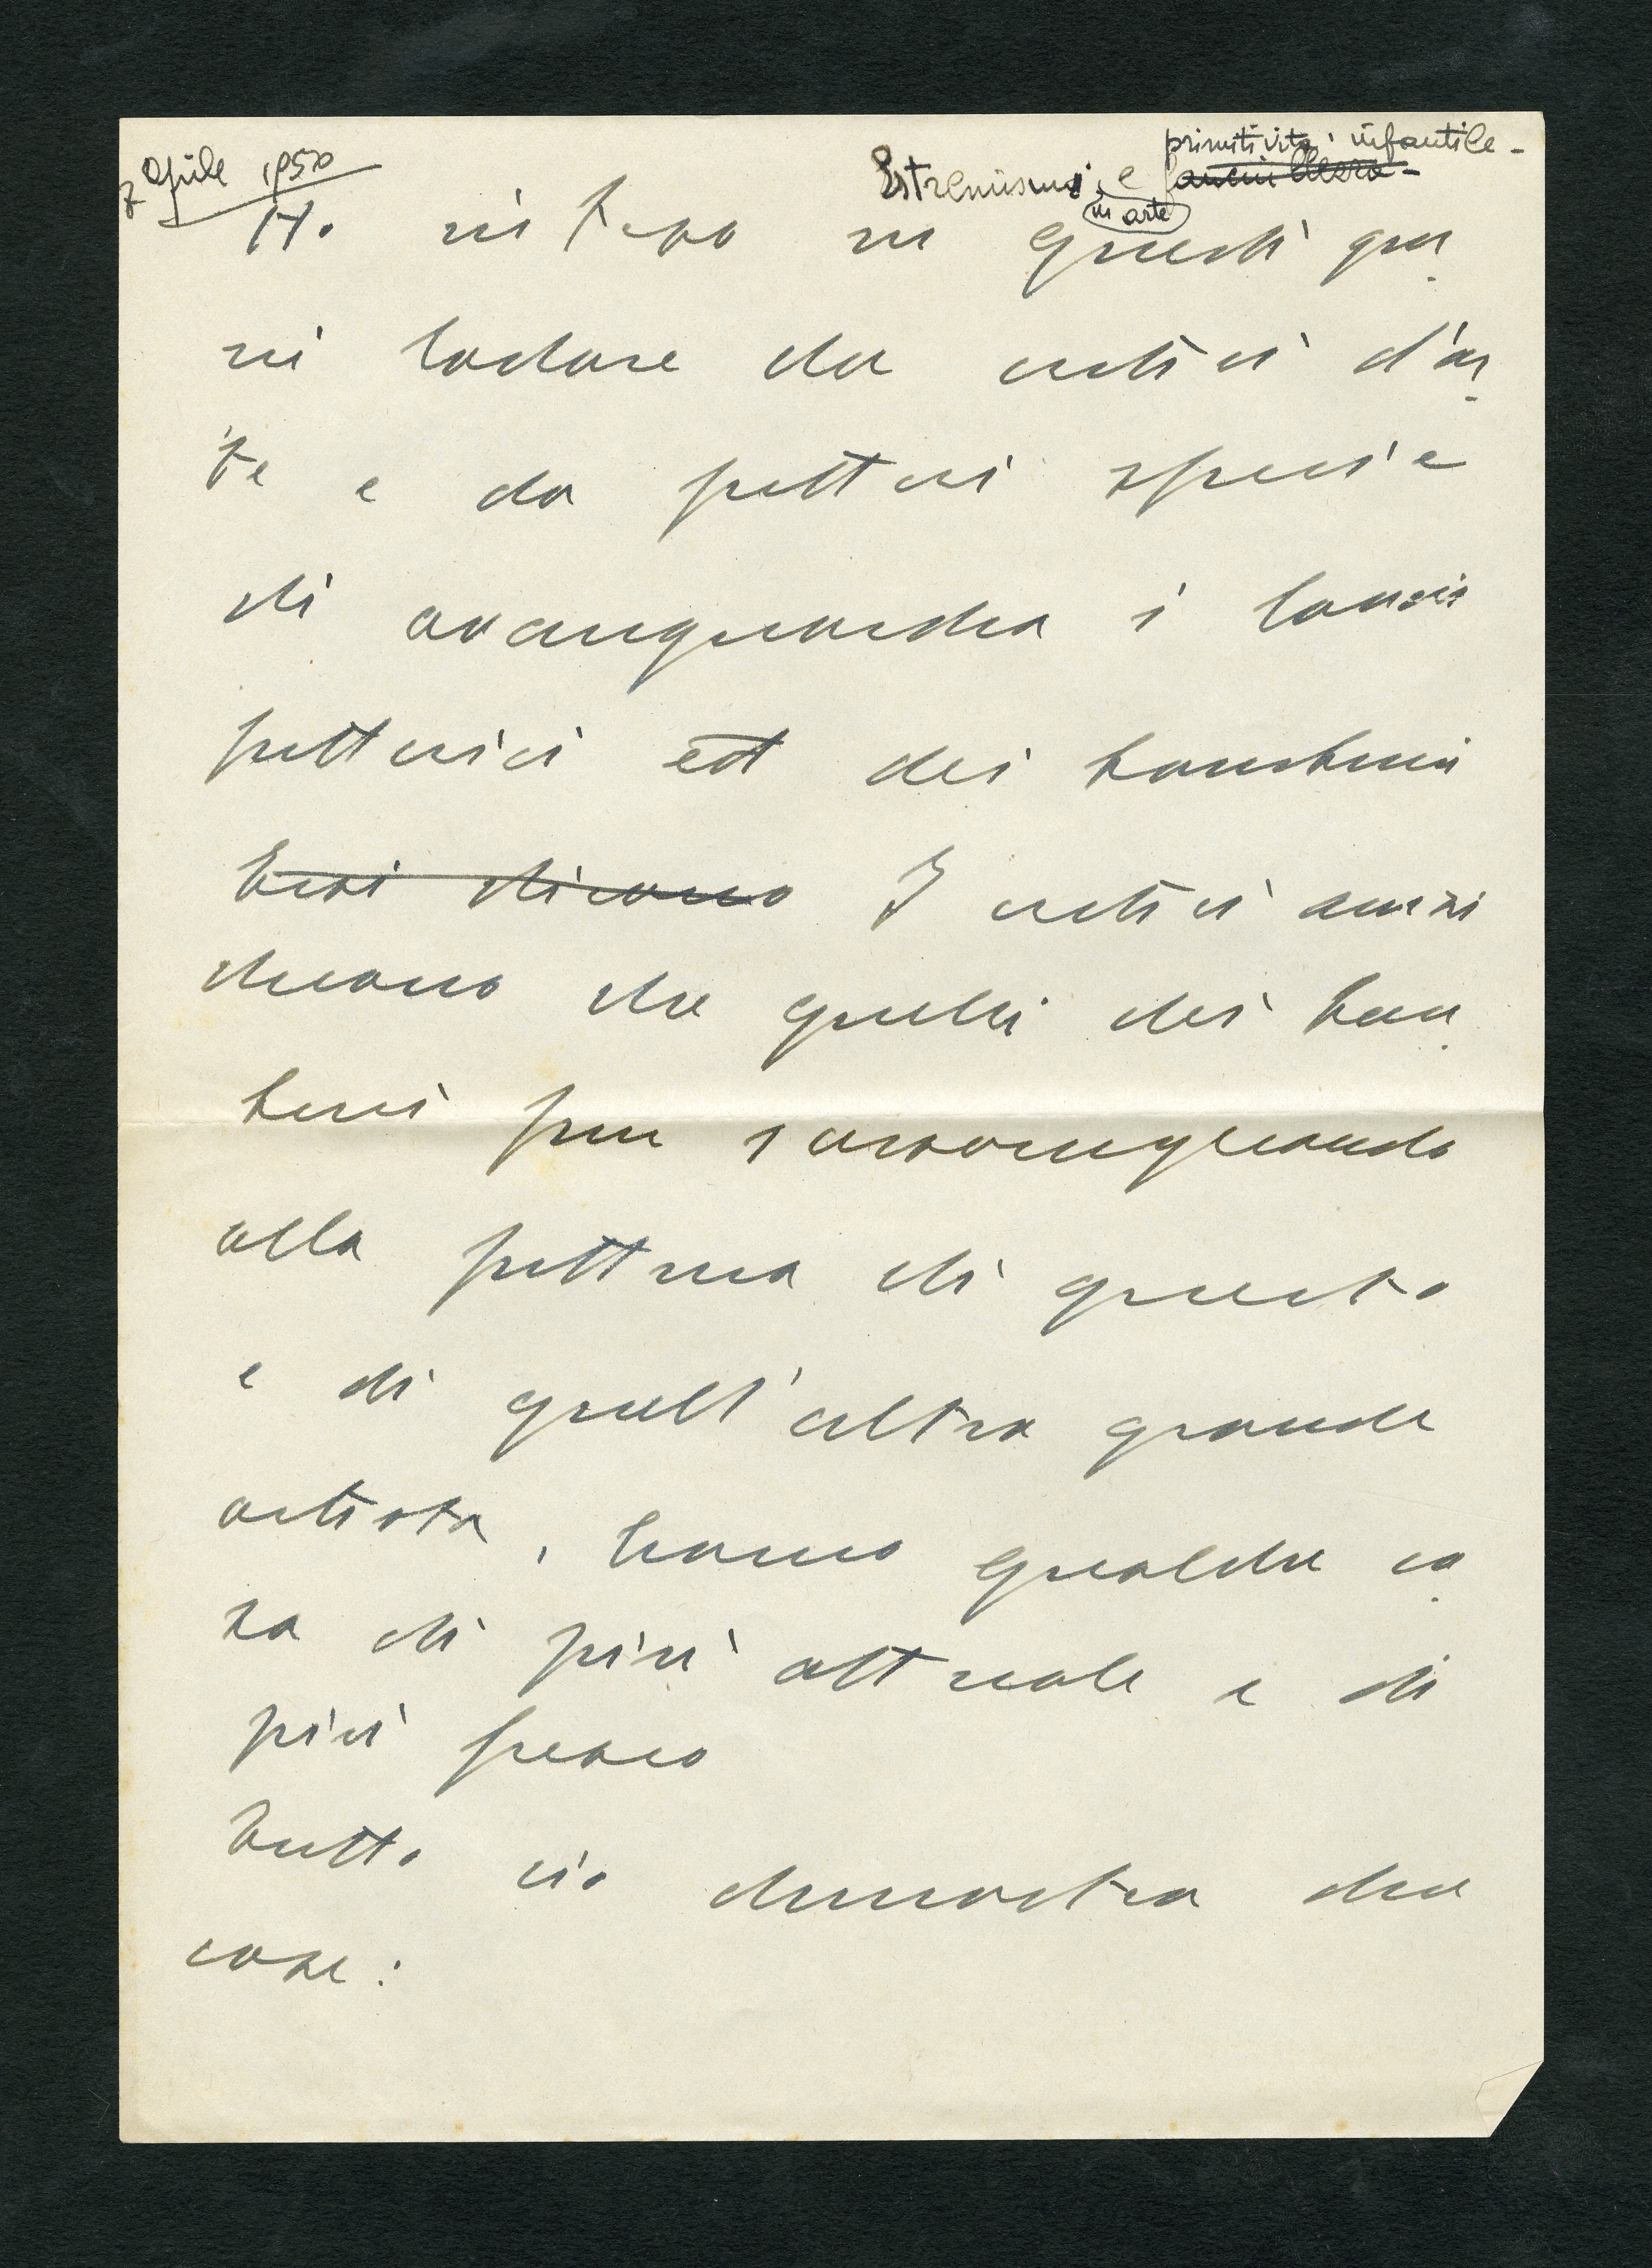 7 Aprile 1950
primitività infantile -
Estremismi, e fanciullezza -
in arte
Ho inteso in questi gior
ni lodare da critici d'ar
te e da pittori specie
di avanguardia i lavori
pittorici dei bambini
Essi dicono I critici anzi
dicono che quelli dei bam
bini pur rassomigliando
alla pittura di questo
e di quell'altro grande
artista, hanno qualche co
sa di più attuale e di
più fresco
Tutto ciò dimostra due
cose: